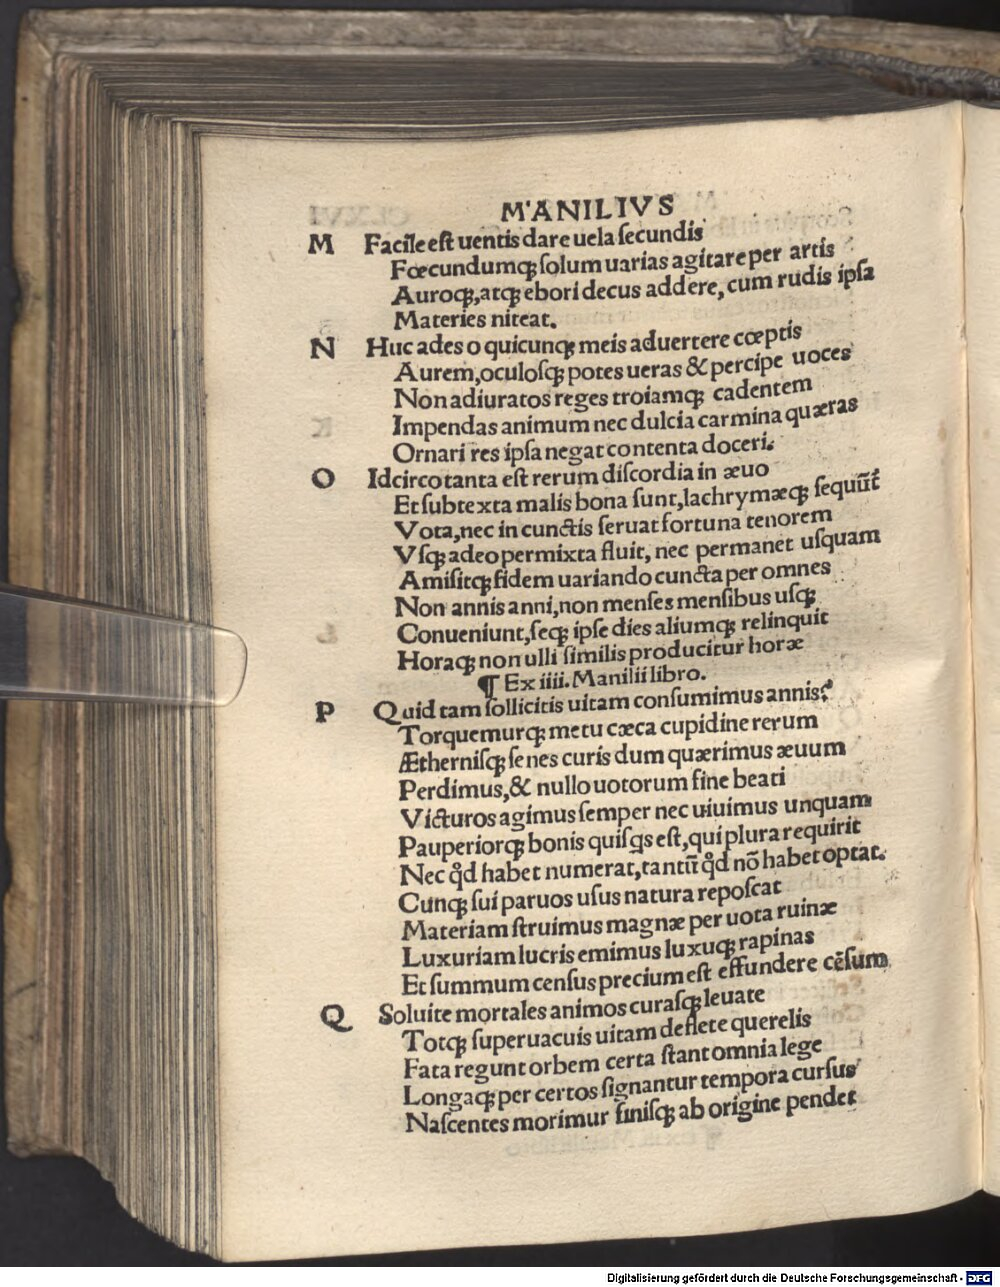 M'ANILIVS
M Facile est uentis dare uela secundis
Fœcundumqꝫ solum uarias agitare per artis
Auroqꝫ, atqꝫ ebori decus addere, cum rudis ipsa
Materies niteat.
N Huc ades o quicunqꝫ meis aduertere cœptis
Aurem, oculosqꝫ potes ueras & percipe uoces
Non adiuratos reges troiamqꝫ cadentem
Impendas animum nec dulcia carmina quæras
Ornari res ipsa negat contenta doceri.
O Idcirco tanta est rerum discordia in æuo
Et subtexta malis bona sunt, lachrymæqꝫ sequũt̃
Vota, nec in cunctis seruat fortuna tenorem
Vsqꝫ adeo permixta fluit, nec permanet usquam
Amisitqꝫ fidem uariando cuncta per omnes
Non annis anni, non menses mensibus usqꝫ
Conueniunt, seqꝫ ipse dies aliumqꝫ relinquit
Horaqꝫ non ulli similis producitur horæ
¶ Ex iiii. Manilii libro.
P Quid tam sollicitis uitam consumimus annis?
Torquemurqꝫ metu cæca cupidine rerum
Æthernisqꝫ senes curis dum quærimus æuum
Perdimus, & nullo uotorum fine beati
Victuros agimus semper nec uiuimus unquam
Pauperiorqꝫ bonis quisqs est, qui plura requirit
Nec qd̉ habet numerat, tantũ qd̉ nõ habet optat.
Cunqꝫ sui paruos usus natura reposcat
Materiam struimus magnæ per uota ruinæ
Luxuriam lucris emimus luxuqꝫ rapinas
Et summum census precium est effundere cẽsum
Q Soluite mortales animos curasqꝫ leuate
Totqꝫ superuacuis uitam deflete querelis
Fata regunt orbem certa stant omnia lege
Longaqꝫ per certos signantur tempora cursus
Nascentes morimur finisqꝫ ab origine pendet
Digitalisierung gefördert durch die Deutsche Forschungsgemeinschaft - DFG